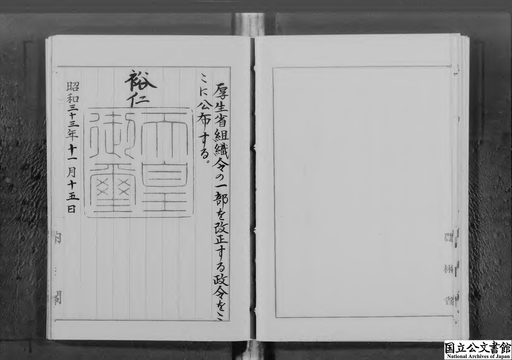 厚生省組織令の一部を改正する政令をこ
こに公布する。
裕仁
天皇
御璽
昭和三十三年十一月十五日
内閣
農林省
国立公文書館
National Archives of Japan